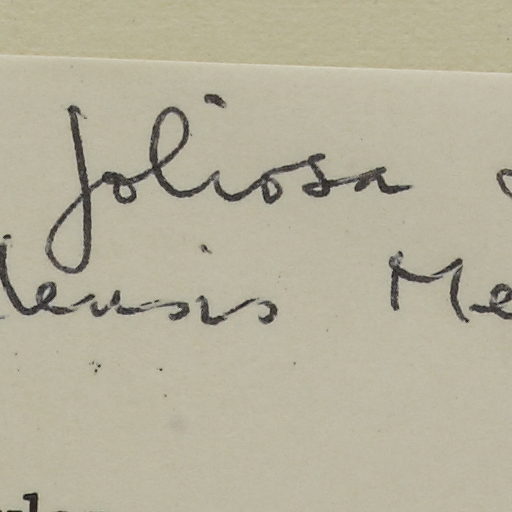 foliosa
densis Me